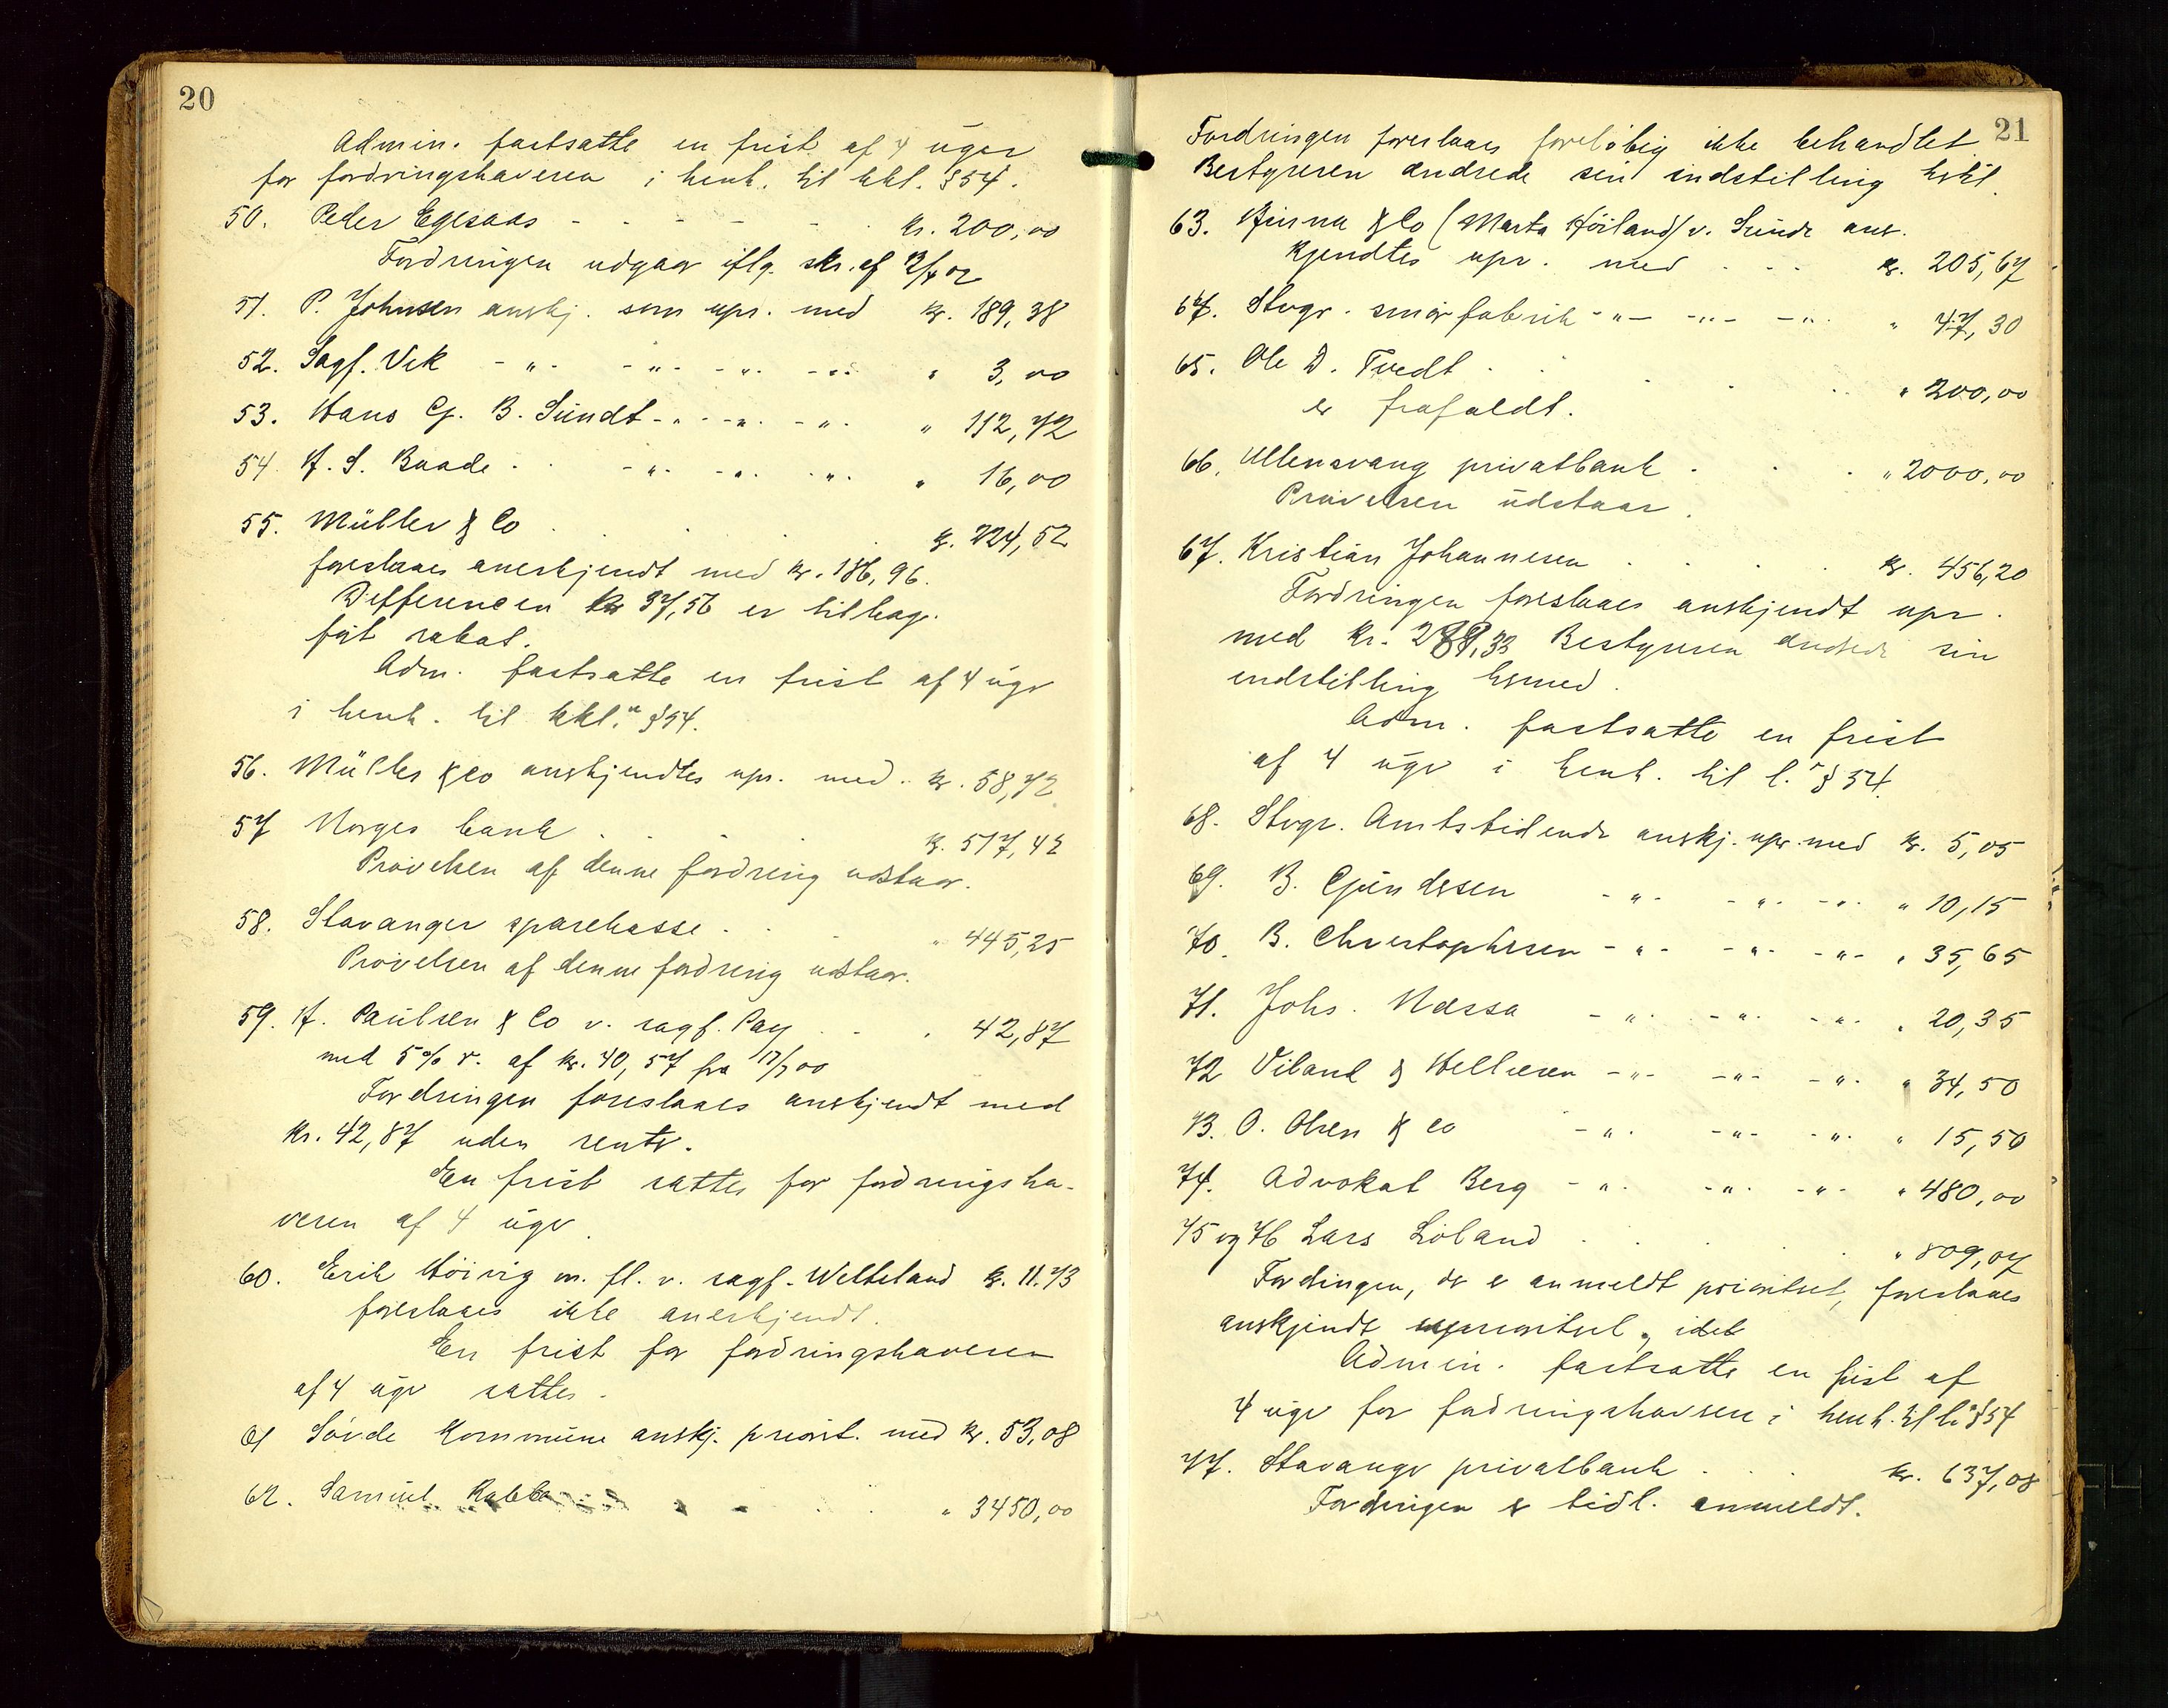 20
Admin. fastsatte en frist af 4 uger
for fordringshaveren i henh. til kkl. § 54.
50. Peder Egesaas - - - - - kr. 200,00
Fordringen udgaar iflg. skr. af
51. P. Johnsen anerkj. som upr. med kr. 189,38
52. Sagf. Vik - " - - " - - " - - " - " 3,00
53. Hans G. B. Sundt - " - - " - - " - " 112,72
54. A. S. Baade - " - - " - " - " 16,00
55. Müller & Co . . . kr. 224,52
foreslaaes anerkjendt med kr. 186,96.
Differencen kr 37,56 er tilbage-
ført rabat.
Adm. fastsatte en frist af 4 uger
i henh. til kkl. § 54.
56. Müller & Co anerkjendtes upr. med kr. 58,72
57 Norges bank . . . kr. 517,42
Prøvelsen af denne fordring udstaar.
58. Stavanger sparekasse . . . " 445,25
Prøvelsen af denne fordring udstaar.
59. A. Paulsen & Co v. sagf. Pay . . " 42,87
med 5% r. af kr. 40,57 fra 17/7 00
Fordringen foreslaaes anerkjendt med
kr. 42,87 uden rente.
En frist sattes for fordringsha-
veren af 4 uger.
60. Erik Høivig m. fl. v. sagf. Welteland kr. 11.73
foreslaaes ikke anerkjendt.
En frist for fordringshaveren
af 4 uger sattes.
61 Søvde kommune anerkj. priorit. med kr. 53,08
62. Samuel Rabbe . . . " 3450,00
21
Fordringen foreslaaes foreløbig ikke behandlet
Bestyreren ændrede sin indstilling hertil.
63. & Co (Marta Høiland) v. Sunde aner-
kjendtes upr. med . . . kr. 205,67
64. Stvgr. smørfabrik - " - - " - - " - " 47,30
65. Ole D. Tvedt . . . . " 200,00
er frafaldt.
66. Ullensvang privatbank . . . " 2000,00
Prøvelsen udstaar.
67. Kristian Johannesen . . . . kr. 456,20
Fordringen foreslaaes anerkjendt upr.
med kr. Bestyreren ændrede sin
indstilling hermed.
Adm. fastsatte en frist
af 4 uger i henh. til l. § 54.
68. Stvgr. Amtstidende anerkj. upr. med kr. 5,05
69. B. Gundersen - " - - " - - " - " 10,15
70. B. Christophersen - " - - " - - " - " 35,65
71. Johs. Næssa - " - - " - - " - " 20,35
72 Viland & Hellesen - " - - " - - " - " 34,50
73. O. Olsen & Co - " - - " - - " - " 15,50
74. Advokat Berg - " - - " - - " - " 480,00
75 og 76 Lars Løland . . . . " 809,07
Fordringen, der er anmeldt prioritert, foreslaaes
anerkjendt uprioritert, idet
Admin. fastsatte en frist af
4 uger for fordringshaveren i henh. til l. § 54
77. Stavanger privatbank . . . kr. 637,08
Fordringen er tidl. anmeldt.